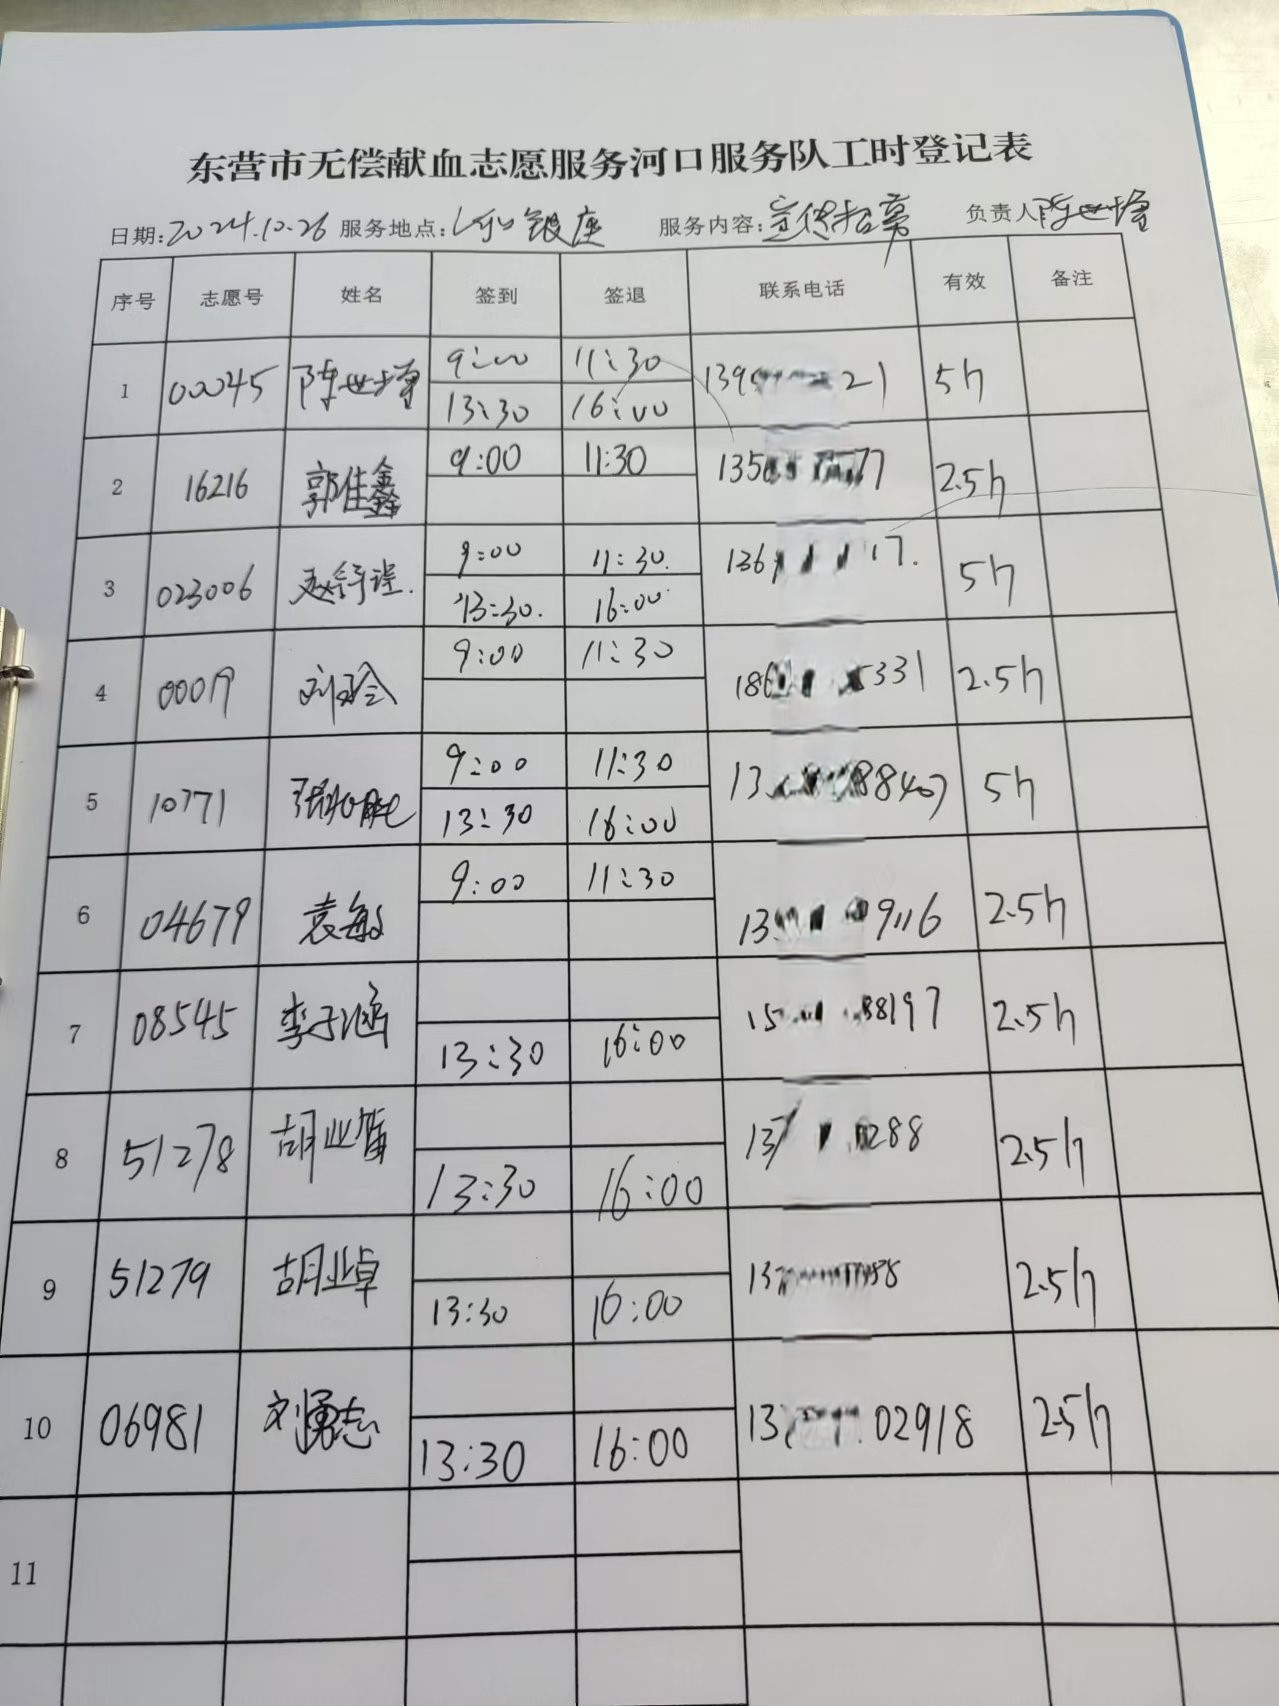 东营市无偿献血志愿服务河口服务队工时登记表
日期:2024.10.26 服务地点:河口银座 服务内容:宣传招募 负责人陈世增
序号 志愿号 姓名 签到 签退 联系电话 有效 备注
1 00045 陈世增 9:00 11:30 139 21 5h
13:30 16:00
2 16216 郭佳鑫 9:00 11:30 135 77 2.5h
3 023006 9:00 11:30. 136 17. 5h
13:30. 16:00
4 00019 刘玲 9:00 11:30 186 5331 2.5h
5 10771 9:00 11:30 13 88407 5h
13:30 16:00
6 04679 袁敏 9:00 11:30 13 9116 2.5h
7 08545 李子涵 15 88197 2.5h
13:30 16:00
8 51278 胡业 137 288 2.5h
13:30 16:00
9 51279 胡业卓 137 88 2.5h
13:30 16:00
10 06981 刘勇志 13 02918 2.5h
13:30 16:00
11